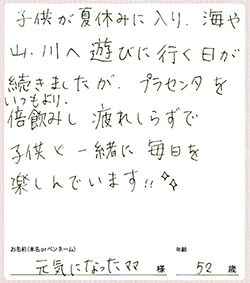 子供が夏休みに入り、海や
山、川へ遊びに行く日が
続きましたが、プラセンタを
いつもより、
倍飲みし疲れしらずで
子供と一緒に毎日を
楽しんでいます!!
お名前(本名orペンネーム)
年齢
元気になったママ 様 52 歳